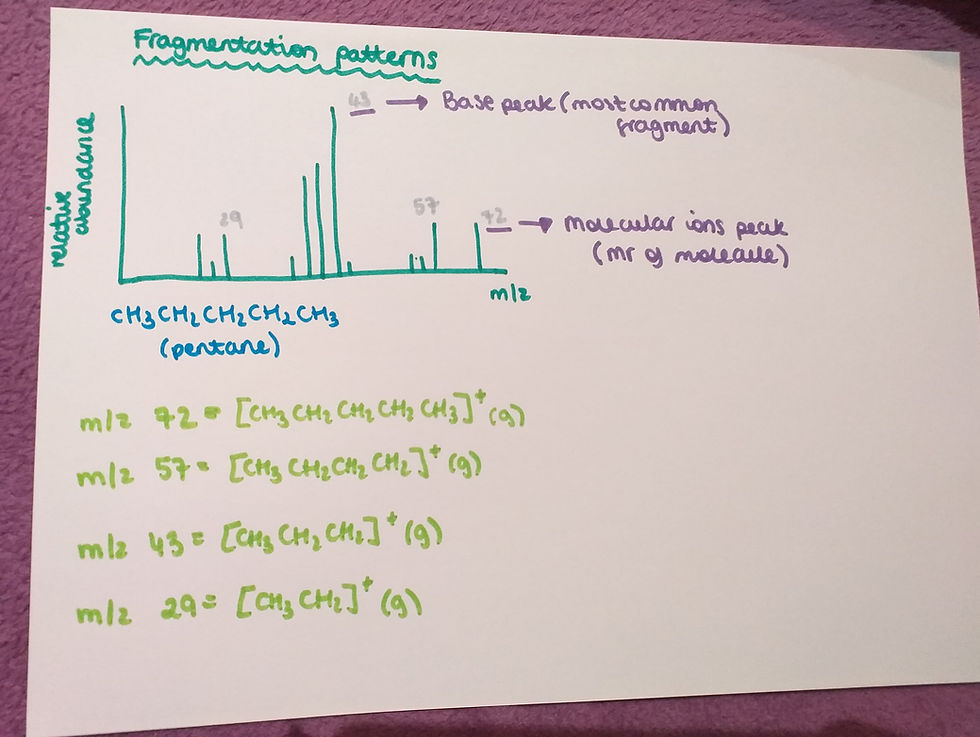 Fragmentation patterns
relative
abundance
43 → Base peak (most common
fragment)
29
57
72 → molecular ions peak
(mr of molecule)
m/z
CH3CH2CH2CH2CH3
(pentane)
m/z 72 = [CH3CH2CH2CH2CH3]+(g)
m/z 57 = [CH3CH2CH2CH2]+(g)
m/z 43 = [CH3CH2CH2]+(g)
m/z 29 = [CH3CH2]+(g)